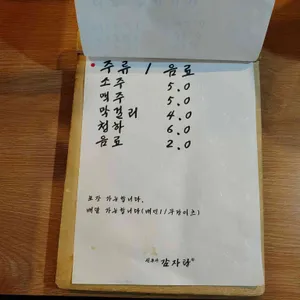 주류 / 음료
소주 5.0
맥주 5.0
막걸리 4.0
청하 6.0
음료 2.0
포장 가능합니다.
배달 가능합니다(배민//쿠팡이츠)
감자탕